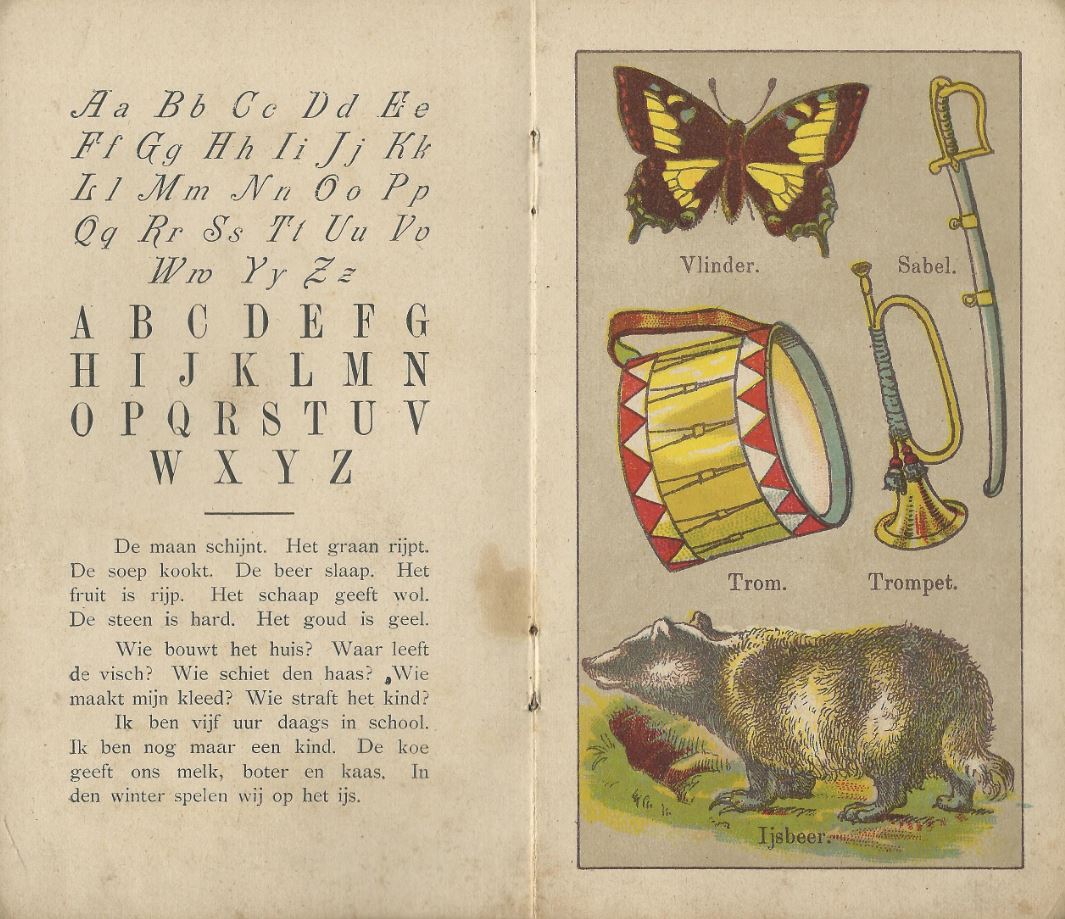 Aa Bb Cc Dd Ee
Ff Gg Hh Ii Jj Kk
Ll Mm Nn Oo Pp
Qq Rr Ss Tt Uu Vv
Ww Yy Zz
A B C D E F G
H I J K L M N
O P Q R S T U V
W X Y Z
De maan schijnt. Het graan rijpt.
De soep kookt. De beer slaap. Het
fruit is rijp. Het schaap geeft wol.
De steen is hard. Het goud is geel.
Wie bouwt het huis? Waar leeft
de visch? Wie schiet den haas? Wie
maakt mijn kleed? Wie straft het kind?
Ik ben vijf uur daags in school.
Ik ben nog maar een kind. De koe
geeft ons melk, boter en kaas. In
den winter spelen wij op het ijs.
Vlinder. Sabel.
Trom. Trompet.
Ijsbeer.